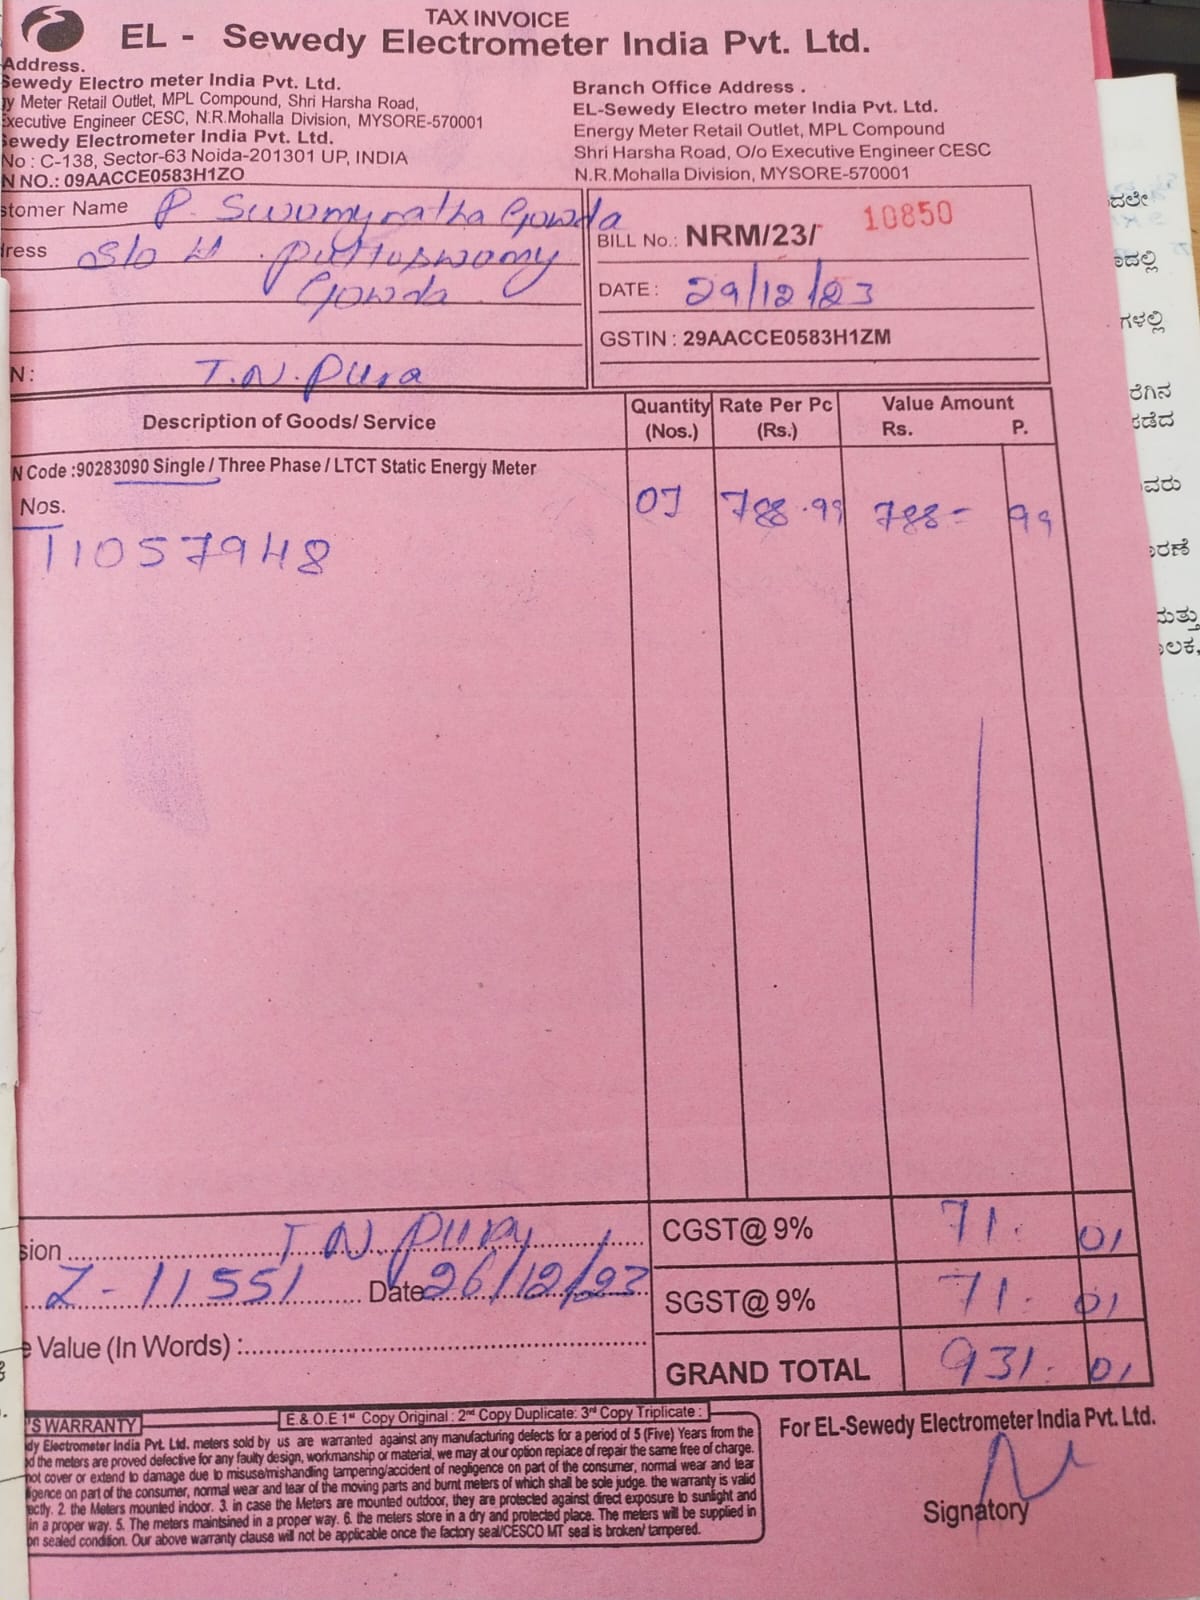 TAX INVOICE
EL - Sewedy Electrometer India Pvt. Ltd.
Address.
Sewedy Electro meter India Pvt. Ltd.
gy Meter Retail Outlet, MPL Compound, Shri Harsha Road,
Executive Engineer CESC, N.R.Mohalla Division, MYSORE-570001
Sewedy Electrometer India Pvt. Ltd.
No : C-138, Sector-63 Noida-201301 UP, INDIA
N NO.: 09AACCE0583H1ZO
Branch Office Address .
EL-Sewedy Electro meter India Pvt. Ltd.
Energy Meter Retail Outlet, MPL Compound
Shri Harsha Road, O/o Executive Engineer CESC
N.R.Mohalla Division, MYSORE-570001
stomer Name P. Swamynatha Gowda
dress S/o H. Puttuswamy
Gowda
N : T.N. Pura
BILL No.: NRM/23/ 10850
DATE : 29/12/23
GSTIN : 29AACCE0583H1ZM
Description of Goods/ Service Quantity (Nos.) Rate Per Pc (Rs.) Value Amount Rs. P.
N Code :90283090 Single / Three Phase / LTCT Static Energy Meter
Nos. 01 788.99 788= 99
11057948
sion T.N. Pura CGST@ 9% 71. 01
Z-11551 Date 26/12/23 SGST@ 9% 71. 01
e Value (In Words) : GRAND TOTAL 931. 01
E.& O.E 1st Copy Original : 2nd Copy Duplicate: 3rd Copy Triplicate :
'S WARRANTY
dy Electrometer India Pvt. Ltd. meters sold by us are warranted against any manufacturing defects for a period of 5 (Five) Years from the
d the meters are proved defective for any faulty design, workmanship or material, we may at our option replace of repair the same free of charge.
not cover or extend to damage due to misuse/mishandling tampering/accident of negligence on part of the consumer, normal wear and tear
ligence on part of the consumer, normal wear and tear of the moving parts and burnt meters of which shall be sole judge. the warranty is valid
ectly. 2. the Meters mounted indoor. 3. in case the Meters are mounted outdoor, they are protected against direct exposure to sunlight and
in a proper way. 5. The meters maintsined in a proper way. 6. the meters store in a dry and protected place. The meters will be supplied in
on sealed condition. Our above warranty clause will not be applicable once the factory seal/CESCO MT seal is broken/ tampered.
For EL-Sewedy Electrometer India Pvt. Ltd.
Signatory